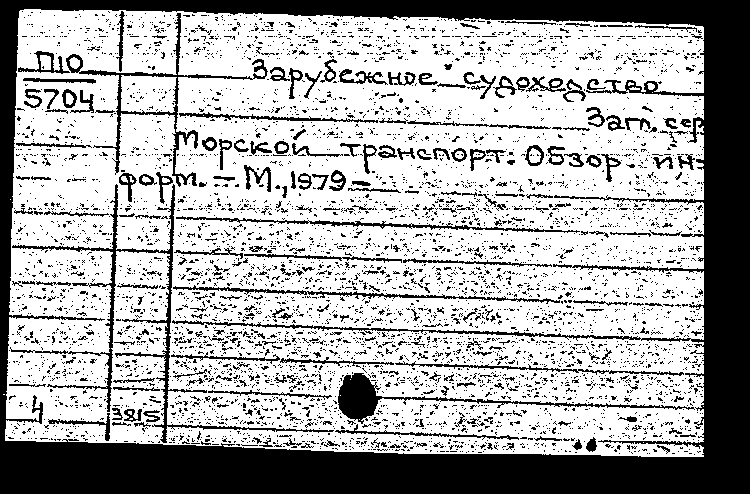 П10
5704
Зарубежное судоходство
Загл. сер
Морской транспорт. Обзор. ин-
форм. — М., 1979 —
4
3815